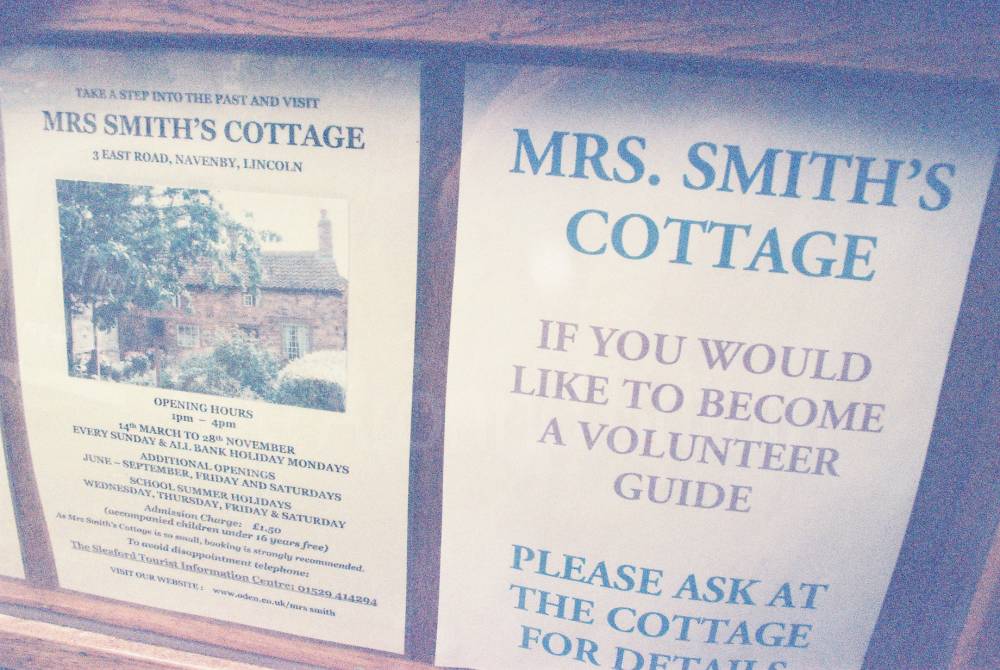 TAKE A STEP INTO THE PAST AND VISIT
MRS SMITH'S COTTAGE
3 EAST ROAD, NAVENBY, LINCOLN
OPENING HOURS
1pm – 4pm
14th MARCH TO 28th NOVEMBER
EVERY SUNDAY & ALL BANK HOLIDAY MONDAYS
ADDITIONAL OPENINGS
JUNE – SEPTEMBER, FRIDAY AND SATURDAYS
SCHOOL SUMMER HOLIDAYS
WEDNESDAY, THURSDAY, FRIDAY & SATURDAY
Admission Charge: £1.50
(accompanied children under 16 years free)
As Mrs Smith's Cottage is so small, booking is strongly recommended.
To avoid disappointment telephone:
The Sleaford Tourist Information Centre: 01529 414294
VISIT OUR WEBSITE : www.oden.co.uk/mrs smith
MRS. SMITH'S
COTTAGE
IF YOU WOULD
LIKE TO BECOME
A VOLUNTEER
GUIDE
PLEASE ASK AT
THE COTTAGE
FOR DETAILS